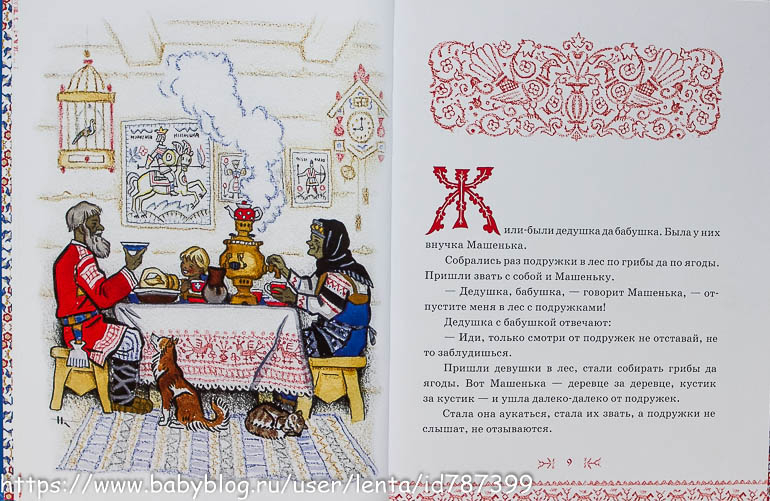 Жили-были дедушка да бабушка. Была у них
внучка Машенька.
Собрались раз подружки в лес по грибы да по ягоды.
Пришли звать с собой и Машеньку.
— Дедушка, бабушка, — говорит Машенька, — от-
пустите меня в лес с подружками!
Дедушка с бабушкой отвечают:
— Иди, только смотри от подружек не отставай, не
то заблудишься.
Пришли девушки в лес, стали собирать грибы да
ягоды. Вот Машенька — деревце за деревце, кустик
за кустик — и ушла далеко-далеко от подружек.
Стала она аукаться, стала их звать, а подружки не
слышат, не отзываются.
9
https://www.babyblog.ru/user/lenta/id787399